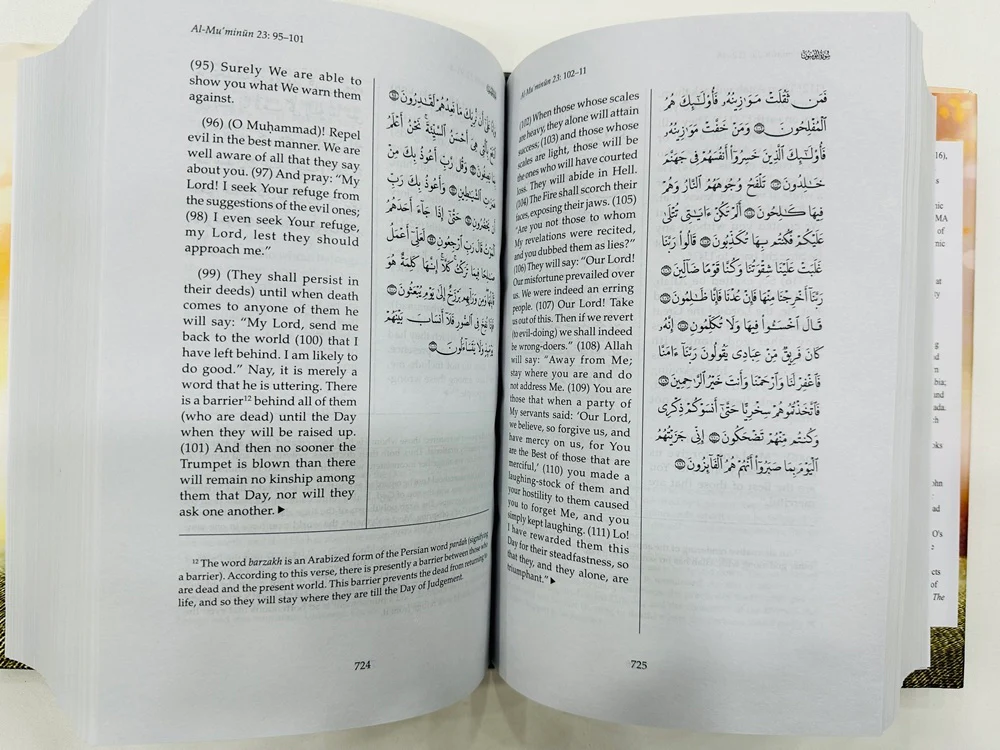 Al-Mu'minūn 23: 95–101
(95) Surely We are able to
show you what We warn them
against.
(96) (O Muḥammad)! Repel
evil in the best manner. We are
well aware of all that they say
about you. (97) And pray: “My
Lord! I seek Your refuge from
the suggestions of the evil ones;
(98) I even seek Your refuge,
my Lord, lest they should
approach me.”
(99) (They shall persist in
their deeds) until when death
comes to anyone of them he
will say: “My Lord, send me
back to the world (100) that I
have left behind. I am likely to
do good.” Nay, it is merely a
word that he is uttering. There
is a barrier¹² behind all of them
(who are dead) until the Day
when they will be raised up.
(101) And then no sooner the
Trumpet is blown than there
will remain no kinship among
them that Day, nor will they
ask one another. ▶
وَإِنَّا عَلَىٰٓ أَن نُّرِيَكَ مَا نَعِدُهُمْ لَقَـٰدِرُونَ ۝٩٥
ٱدْفَعْ بِٱلَّتِى هِىَ أَحْسَنُ ٱلسَّيِّئَةَ ۚ نَحْنُ أَعْلَمُ
بِمَا يَصِفُونَ ۝٩٦ وَقُل رَّبِّ أَعُوذُ بِكَ مِنْ
هَمَزَٰتِ ٱلشَّيَـٰطِينِ ۝٩٧ وَأَعُوذُ بِكَ رَبِّ
أَن يَحْضُرُونِ ۝٩٨ حَتَّىٰٓ إِذَا جَآءَ أَحَدَهُمُ
ٱلْمَوْتُ قَالَ رَبِّ ٱرْجِعُونِ ۝٩٩ لَعَلِّىٓ أَعْمَلُ
صَـٰلِحًا فِيمَا تَرَكْتُ ۚ كَلَّآ ۚ إِنَّهَا كَلِمَةٌ هُوَ
قَآئِلُهَا ۖ وَمِن وَرَآئِهِم بَرْزَخٌ إِلَىٰ يَوْمِ يُبْعَثُونَ ۝١٠٠
فَإِذَا نُفِخَ فِى ٱلصُّورِ فَلَآ أَنسَابَ بَيْنَهُمْ
يَوْمَئِذٍ وَلَا يَتَسَآءَلُونَ ۝١٠١
¹² The word barzakh is an Arabized form of the Persian word pardah (signifying
a barrier). According to this verse, there is presently a barrier between those who
are dead and the present world. This barrier prevents the dead from returning to
life, and so they will stay where they are till the Day of Judgement.
724
Al-Mu'minūn 23: 102–11
(102) When those whose scales
are heavy, they alone will attain
success; (103) and those whose
scales are light, those will be
the ones who will have courted
loss. They will abide in Hell.
(104) The Fire shall scorch their
faces, exposing their jaws. (105)
“Are you not those to whom
My revelations were recited,
and you dubbed them as lies?”
(106) They will say: “Our Lord!
Our misfortune prevailed over
us. We were indeed an erring
people. (107) Our Lord! Take
us out of this. Then if we revert
(to evil-doing) we shall indeed
be wrong-doers.” (108) Allah
will say: “Away from Me;
stay where you are and do
not address Me. (109) You are
those that when a party of
My servants said: ‘Our Lord,
we believe, so forgive us, and
have mercy on us, for You
are the Best of those that are
merciful,’ (110) you made a
laughing-stock of them and
your hostility to them caused
you to forget Me, and you
simply kept laughing. (111) Lo!
I have rewarded them this
Day for their steadfastness, so
that they, and they alone, are
triumphant.” ▶
سورة المؤمنون
فَمَن ثَقُلَتْ مَوَٰزِينُهُۥ فَأُو۟لَـٰٓئِكَ هُمُ
ٱلْمُفْلِحُونَ ۝١٠٢ وَمَنْ خَفَّتْ مَوَٰزِينُهُۥ
فَأُو۟لَـٰٓئِكَ ٱلَّذِينَ خَسِرُوٓا۟ أَنفُسَهُمْ فِى جَهَنَّمَ
خَـٰلِدُونَ ۝١٠٣ تَلْفَحُ وُجُوهَهُمُ ٱلنَّارُ وَهُمْ
فِيهَا كَـٰلِحُونَ ۝١٠٤ أَلَمْ تَكُنْ ءَايَـٰتِى تُتْلَىٰ
عَلَيْكُمْ فَكُنتُم بِهَا تُكَذِّبُونَ ۝١٠٥ قَالُوا۟ رَبَّنَا
غَلَبَتْ عَلَيْنَا شِقْوَتُنَا وَكُنَّا قَوْمًا ضَآلِّينَ ۝١٠٦
رَبَّنَآ أَخْرِجْنَا مِنْهَا فَإِنْ عُدْنَا فَإِنَّا ظَـٰلِمُونَ ۝١٠٧
قَالَ ٱخْسَـُٔوا۟ فِيهَا وَلَا تُكَلِّمُونِ ۝١٠٨ إِنَّهُۥ
كَانَ فَرِيقٌ مِّنْ عِبَادِى يَقُولُونَ رَبَّنَآ ءَامَنَّا
فَٱغْفِرْ لَنَا وَٱرْحَمْنَا وَأَنتَ خَيْرُ ٱلرَّٰحِمِينَ ۝١٠٩
فَٱتَّخَذْتُمُوهُمْ سِخْرِيًّا حَتَّىٰٓ أَنسَوْكُمْ ذِكْرِى
وَكُنتُم مِّنْهُمْ تَضْحَكُونَ ۝١١٠ إِنِّى جَزَيْتُهُمُ
ٱلْيَوْمَ بِمَا صَبَرُوٓا۟ أَنَّهُمْ هُمُ ٱلْفَآئِزُونَ ۝١١١
725